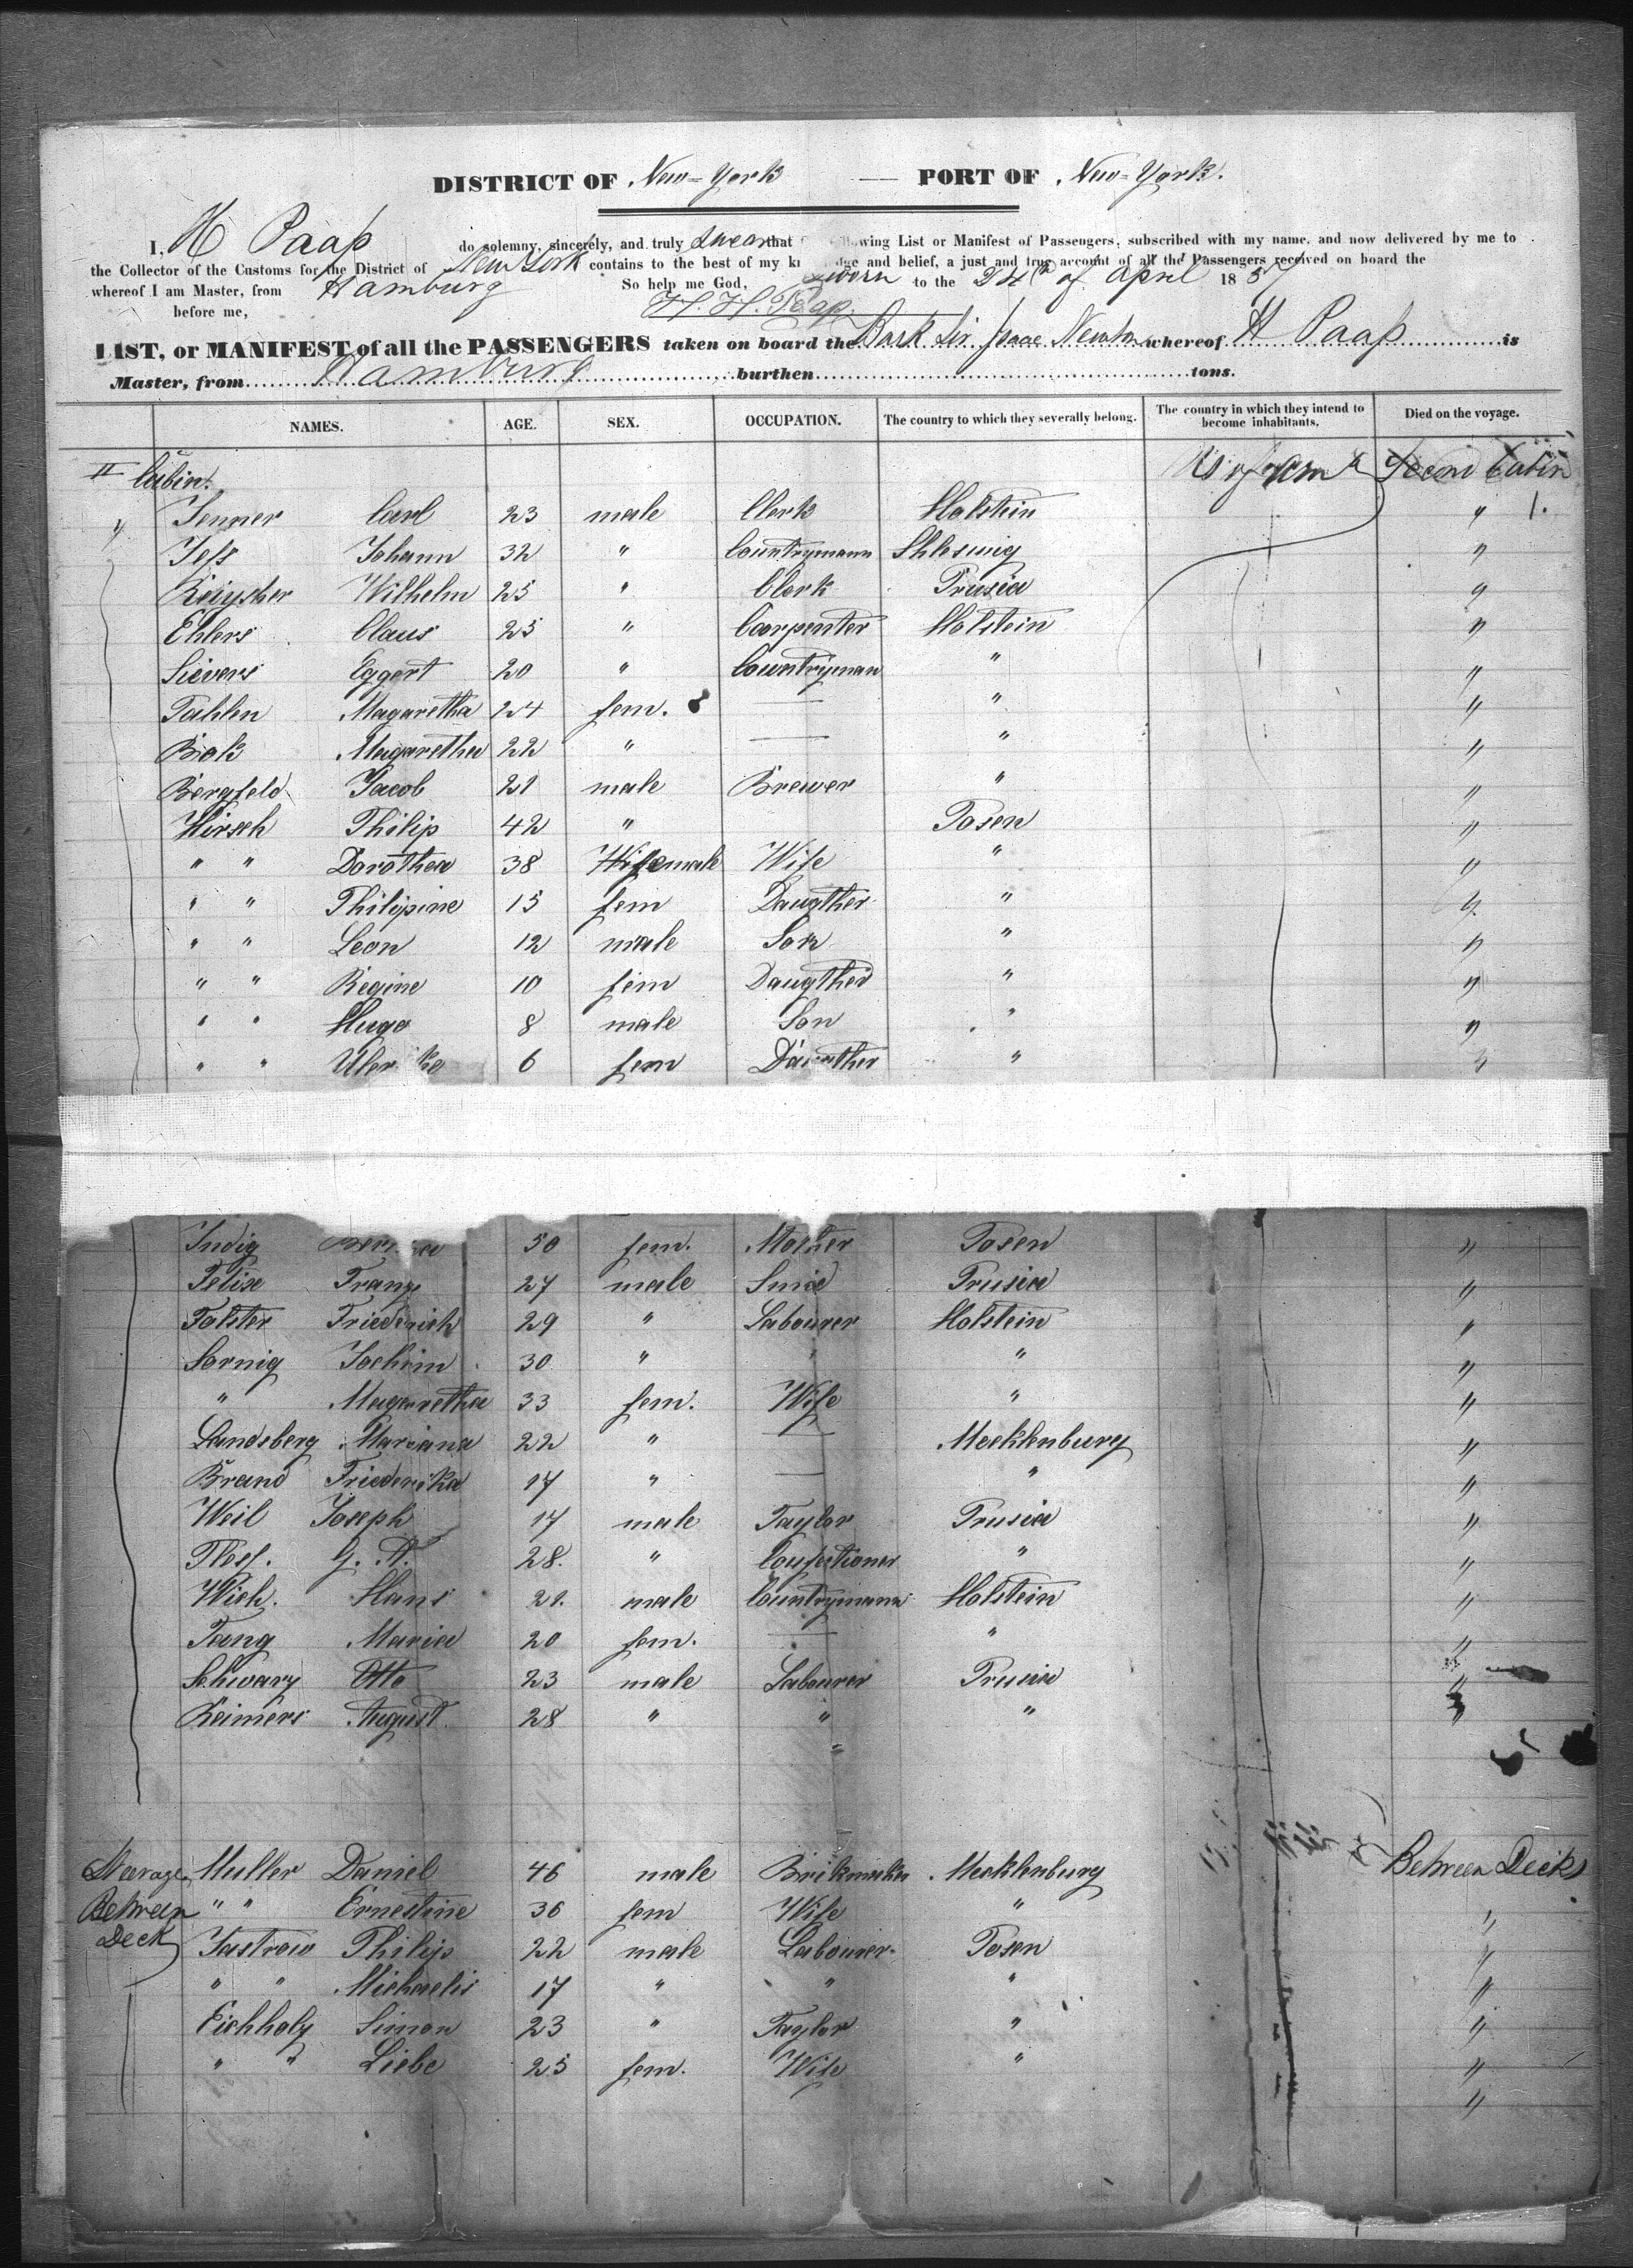 DISTRICT OF New-York — PORT OF New-York.
I, H Paap do solemny, sincerely, and truly Swear that following List or Manifest of Passengers, subscribed with my name, and now delivered by me to
the Collector of the Customs for the District of New York contains to the best of my knowledge and belief, a just and true account of all the Passengers received on board the
whereof I am Master, from Hamburg So help me God, Sworn to the 24th of april 1857
before me, H. H. Paap
LIST, or MANIFEST of all the PASSENGERS taken on board the Bark Sir Isaac Newton whereof H Paap is
Master, from Hamburg burthen tons.
NAMES. AGE. SEX. OCCUPATION. The country to which they severally belong. The country in which they intend to become inhabitants. Died on the voyage.
II Cabin. US of Am Second Cabin
" Jenner Carl 23 male Clerk Holstein " 1.
Jess Johann 32 " Countrymann Shleswig "
Wilhelm 25 " Clerk Prusia "
Ehlers Claus 25 " Carpenter Holstein "
Sievers Eggert 20 " Countryman " "
Tahlen Magaretha 24 fem. — " "
Magaretha 22 " — " "
Bergfeld Jacob 21 male Brewer " "
Hirsch Philip 42 " Posen "
" " Dorothea 38 Wifemale Wife " "
" " Philipine 15 fem Daugther " "
" " Leon 12 male Son " "
" " Regine 10 fem Daugther " "
" " Hugo 8 male Son " "
" " Ulerike 6 fem Daugther " "
Indig 50 fem. Mother Posen "
Felix Franz 27 male Smid Prusia "
Folster Friederich 29 " Labourer Holstein "
Sornig Jochim 30 " " " "
" Magaretha 33 fem. Wife " "
Landsberg Mariana 22 " — Mecklenburg "
Brand Friederika 17 " — " "
Weil Joseph 17 male Taylor Prusia "
G. A. 28. " Confectioner " "
Wich. Hans 21. male Countrymann Holstein "
Tang Maria 20 fem. — " "
Schwarz Otto 23 male Labourer Prusia "
Reimers August 28 " " " "
"
Steerage Muller Daniel 46 male Brikmaker Mecklenburg Between Decks
Between " " Ernestine 36 fem Wife " "
Deck Jastrow Philip 22 male Labourer Posen "
" " Michaelis 17 " " " "
Eichholz Simon 23 " Taylor " "
" " Liebe 25 fem. Wife " "
"